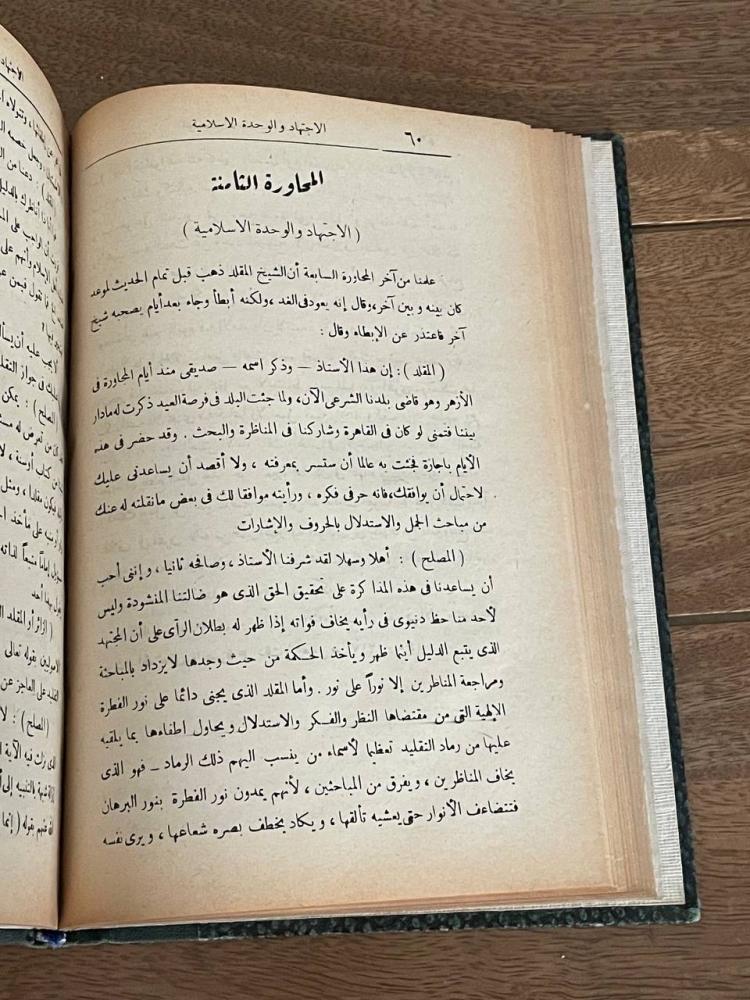 الاجتهاد والوحدة الاسلامية
٦٠
المحاورة الثامنة
( الاجتهاد والوحدة الاسلامية )
علمنا من آخر المحاورة السابعة أن الشيخ المقلد ذهب قبل تمام الحديث لموعد
كان بينه وبين آخر، وقال إنه يعود فى الغد، ولكنه أبطأ وجاء بعد أيام يصحبه شيخ
آخر فاعتذر عن الإبطاء وقال :
(المقلد) : إن هذا الأستاذ — وذكر اسمه — صديقى منذ أيام المجاورة فى
الأزهر وهو قاضى بلدنا الشرعى الآن، ولما جئت البلد فى فرصة العيد ذكرت له مادار
بيننا فتمنى لو كان فى القاهرة وشاركنا فى المناظرة والبحث . وقد حضر فى هذه
الأيام باجازة فجئت به عالما أن ستسر بمعرفته ، ولا أقصد أن يساعدنى عليك
لاحتمال أن يوافقك، فانه حر فى فكره ، ورأيته موافقا لك فى بعض مانقلته له عنك
من مباحث الجمل والاستدلال بالحروف والإشارات
(المصلح) : أهلا وسهلا لقد شرفنا الأستاذ ، وصافحه ثانيا ، وإننى أحب
أن يساعدنا فى هذه المذاكرة على تحقيق الحق الذى هو ضالتنا المنشودة وليس
لأحد منا حظ دنيوى فى رأيه يخاف فواته إذا ظهر له بطلان الرأى على أن المجتهد
الذى يتبع الدليل أينما ظهر ويأخذ الحكمة من حيث وجدها لا يزداد بالمباحثة
ومراجعة المناظرين إلا نوراً على نور . وأما المقلد الذى يجنى دائما على نور الفطرة
الإلهية التى من مقتضاها النظر والفكر والاستدلال ويحاول اطفاءها بما يلقيه
عليها من رماد التقليد تعظيما لأسماء من ينسب اليهم ذلك الرماد — فهو الذى
يخاف المناظرين ، ويفرق من المباحثين ، لأنهم يمدون نور الفطرة بنور البرهان
فتتضاعف الأنوار حتى يعشيه تألقها ، ويكاد يخطف بصره شعاعها ، ويرى نفسه